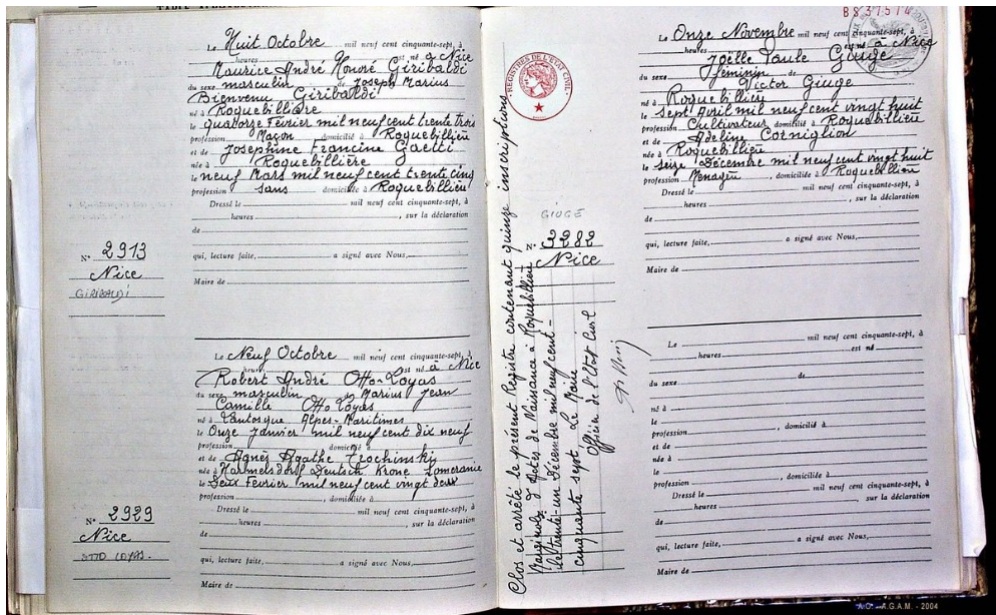 Le Huit Octobre mil neuf cent cinquante-sept, à
heures est né à Nice
Maurice André Honoré Giribaldi
du sexe masculin de Joseph Marius
Bienvenu Giribaldi
né à Roquebillière
le quatorze Février mil neuf cent trente trois
profession Maçon domicilié à Roquebillière
et de Joséphine Francine Gaetti
née à Roquebillière
le neuf Mars mil neuf cent trente cinq
profession sans domiciliée à Roquebillière
Dressé le mil neuf cent cinquante-sept, à
heures , sur la déclaration
de
qui, lecture faite, a signé avec Nous,
Maire de
N° 2913
Nice
GIRIBALDI
Le Neuf Octobre mil neuf cent cinquante-sept, à
heures est né à Nice
Robert André Otto Loyas
du sexe masculin de Marius Jean
Camille Otto Loyas
né à Lantosque Alpes-Maritimes
le Onze Janvier mil neuf cent dix neuf
profession domicilié à
et de Agnès Agathe Trochinski
née à Harmelsdorf Deutsch Krone Pomeranie
le Deux Février mil neuf cent vingt deux
profession , domiciliée à
Dressé le mil neuf cent cinquante-sept, à
heures , sur la déclaration
de
qui, lecture faite, a signé avec Nous,
Maire de
N° 2929
Nice
OTTO LOYAS-
Clos et arrêté le présent Registre contenant quinze inscriptions
marginales d'Actes de Naissance à Roquebillière
le trente-un Décembre mil neuf cent-
cinquante sept Le Maire
Officier de l'Etat Civil
REGISTRES DE L'ETAT CIVIL
GIUGE
N° 3282
Nice
B837514
Le Onze Novembre mil neuf cent cinquante-sept, à
heures est né à Nice
Joëlle Paule Giuge
du sexe féminin de Victor Giuge
né à Roquebillière
le sept Avril mil neuf cent vingt huit
profession Cultivateur domicilié à Roquebillière
et de Adeline Corniglion
née à Roquebillière
le seize Décembre mil neuf cent vingt huit
profession Ménagère domiciliée à Roquebillière
Dressé le mil neuf cent cinquante-sept, à
heures , sur la déclaration
de
qui, lecture faite, a signé avec Nous,
Maire de
Le mil neuf cent cinquante-sept, à
heures est né
du sexe de
né à
le
profession , domicilié à
et de
née à
le
profession , domiciliée à
Dressé le mil neuf cent cinquante-sept, à
heures , sur la déclaration
de
qui, lecture faite, a signé avec Nous,
Maire de
A.D. - A.G.A.M. - 2004